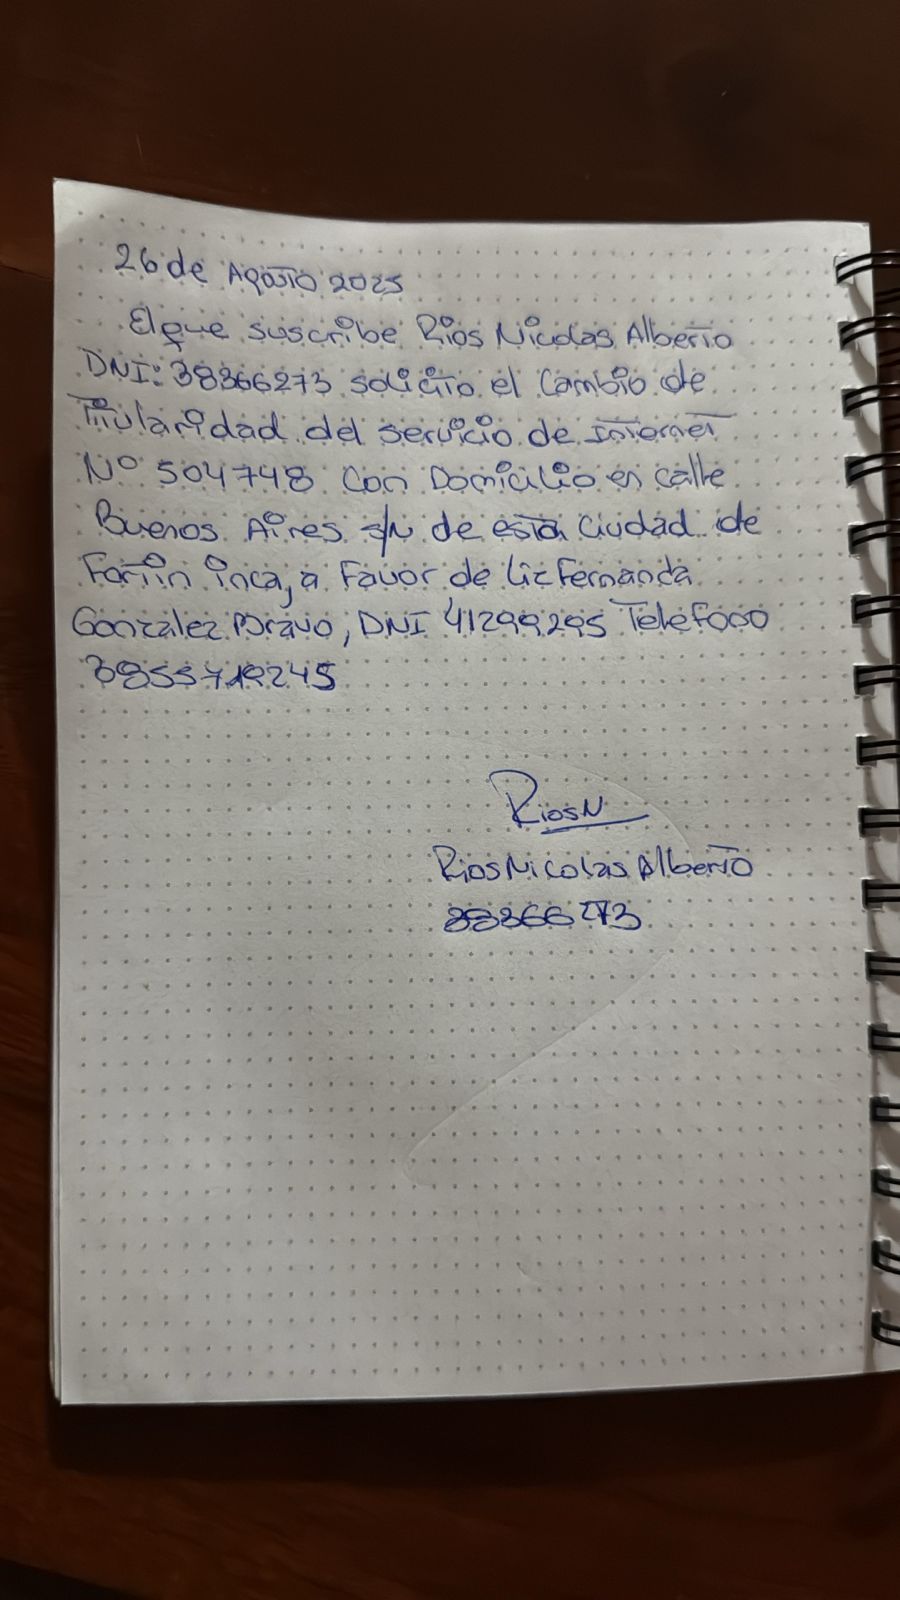 26 de Agosto 2025
El que suscribe Rios Nicolas Alberto
DNI: 38366273 solicito el Cambio de
Titularidad del servicio de Internet
N° 504748 Con Domicilio en calle
Buenos Aires s/N de esta Ciudad de
Fortin inca, a Favor de Liz Fernanda
Gonzalez Bravo, DNI 41299295 Telefono
3855719245
Rios N
Rios Nicolas Alberto
38366273